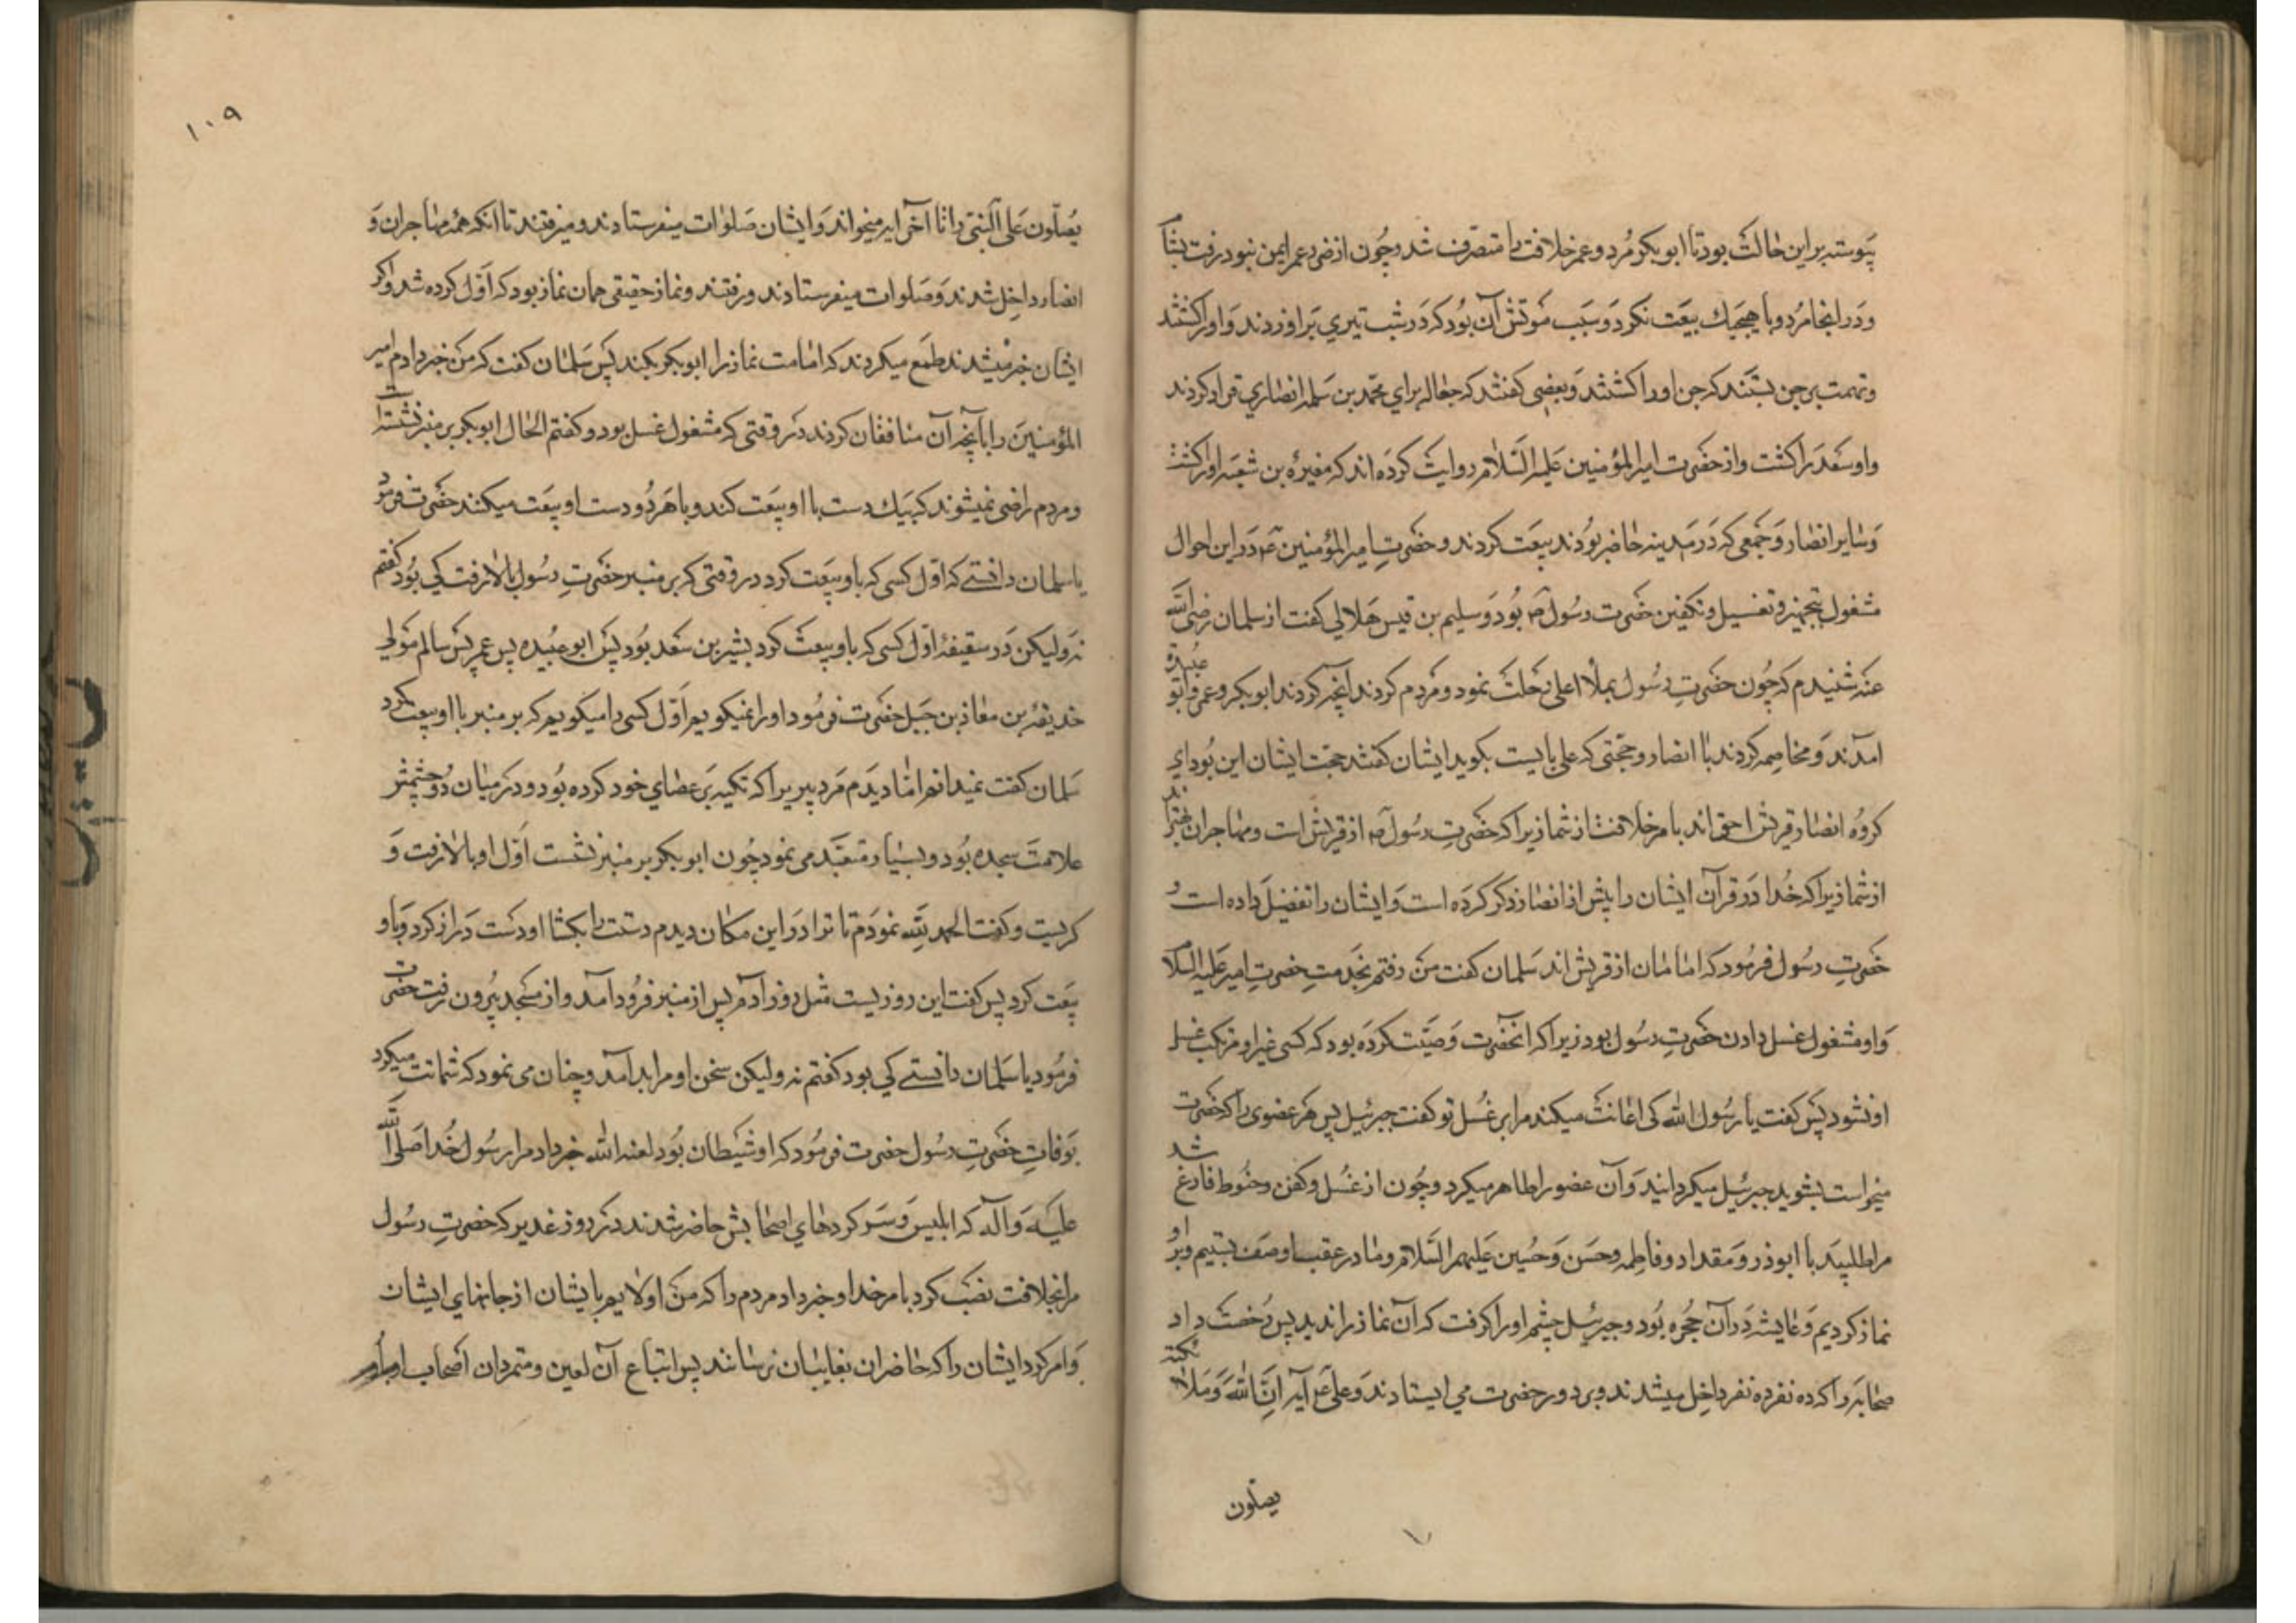 پیوسته براین حالت بود تا ابوبکر مُرد و عمر خلافت را متصرف شد و چون از ضرر عمر ایمن نبود رفت بشام
و در انجا مُرد و با هیچیك بیعت نکرد و سبب موتش آن بود که در شب تیری بر او زدند و او را کشتند
و تهمت بر جن بستند که جن او را کشتند و بعضی کفتند که جعاله برای محمد بن سلمه انصاری قرار کردند
و او سعد را کشت و از حضرت امیر المؤمنین علیه السلام روایت کرده اند که مغیره بن شعبه او را کشت
و سایر انصار و جمعی که در مدینه حاضر بودند بیعت کردند و حضرت امیر المؤمنین ع در این احوال
مشغول بتجهیز و تغسیل و تکفین حضرت رسول ص بود و سلیم بن قیس هلالی کفت از سلمان رضی الله
عنه شنیدم که چون حضرت رسول بملأ اعلی رحلت نمود و مردم کردند آنچه کردند ابوبکر و عمر و ابو عبیده
آمدند و مخاصمه کردند با انصار و حجتی که علی بایست بکوید ایشان کفتند حجت ایشان این بود ای
کروه انصار قریش احق اند بامر خلافت از شما زیرا که حضرت رسول ص از قریش است و مهاجران بهترند
از شما زیرا که خدا در قرآن ایشان را پیش از انصار ذکر کرده است و ایشان را تفضیل داده است و
حضرت رسول فرمود که امامان از قریش اند سلمان کفت من رفتم بخدمت حضرت امیر علیه السلام
و او مشغول غسل دادن حضرت رسول بود زیرا که انحضرت وصیّت کرده بود که کسی غیر او مرتکب غسل
او نشود پس کفت یا رسول الله کی اعانت میکند مرا بر غسل تو کفت جبرئیل پس هر عضوی را که حضرت
میخواست بشوید جبرئیل میکردانید و آن عضو را طاهر میکرد و چون از غسل و کفن و حنوط فارغ شد
مرا طلبید با ابوذر و مقداد و فاطمه و حسن و حسین علیهم السلام و ما در عقب او صف بستیم و بر او
نماز کردیم و عایشه در آن حجره بود و جبرئیل چشم او را کرفت که آن نماز را ندید پس رخصت داد
صحابه را که ده نفر ده نفر داخل میشدند و بر دور حضرت می ایستادند و علی ع آیه انّ الله و ملائکته
یصلّون
۱۰۹
یصلّون علی النبی را تا آخر ایه میخواند و ایشان صلوات میفرستادند و میرفتند تا انکه همه مهاجران و
انصار داخل شدند و صلوات میفرستادند و رفتند و نماز حقیقی همان نماز بود که اول کرده شد و اکر
ایشان خبر میشدند طمع میکردند که امامت نماز را ابوبکر بکند پس سلمان کفت که من خبر دادم امیر
المؤمنین را بآنچه آن منافقان کردند در وقتی که مشغول غسل بود و کفتم الحال ابوبکر بر منبر نشسته است
و مردم راضی نمیشوند که بیك دست با او بیعت کند و با هر دو دست او بیعت میکنند حضرت فرمود
یا سلمان دانستے که اول کسی که باو بیعت کرد در وقتی که بر منبر حضرت رسول بالا رفت کی بود کفتم
نه ولیکن در سقیفه اول کسی که باو بیعت کرد بشیر بن سعد بود پس ابو عبیده پس عمر پس سالم مولی
حذیفه بن معاذ بن جبل حضرت فرمود اورا نمیکویم اول کسی را میکویم که بر منبر با او بیعت کرد
سلمان کفت نمیدانم اما دیدم مرد پیریرا که تکیه بر عصای خود کرده بود و در میان دو چشمش
علامت سجده بود و بسیار متعبد می نمود چون ابوبکر بر منبر نشست اول او بالا رفت و
کریست و کفت الحمد لله نمردم تا ترا در این مکان دیدم دستت را بکشا او دست دراز کرد و باو
بیعت کرد پس کفت این روزیست مثل روز آدم پس از منبر فرود آمد و از مسجد بیرون رفت حضرت
فرمود یا سلمان دانستے کی بود کفتم نه ولیکن سخن او مرا بد آمد و چنان می نمود که شماتت میکرد
بوفات حضرت رسول حضرت فرمود که او شیطان بود لعنه الله خبر داد مرا رسول خدا صلی الله
علیه و آله که ابلیس و سر کردهای اصحابش حاضر شدند در روز غدیر که حضرت رسول
مرا بخلافت نصب کرد بامر خدا و خبر داد مردم را که من اولایم بایشان از جانهای ایشان
و امر کرد ایشان را که حاضران بغایبان برسانند پس اتباع آن لعین و متمردان اصحاب او